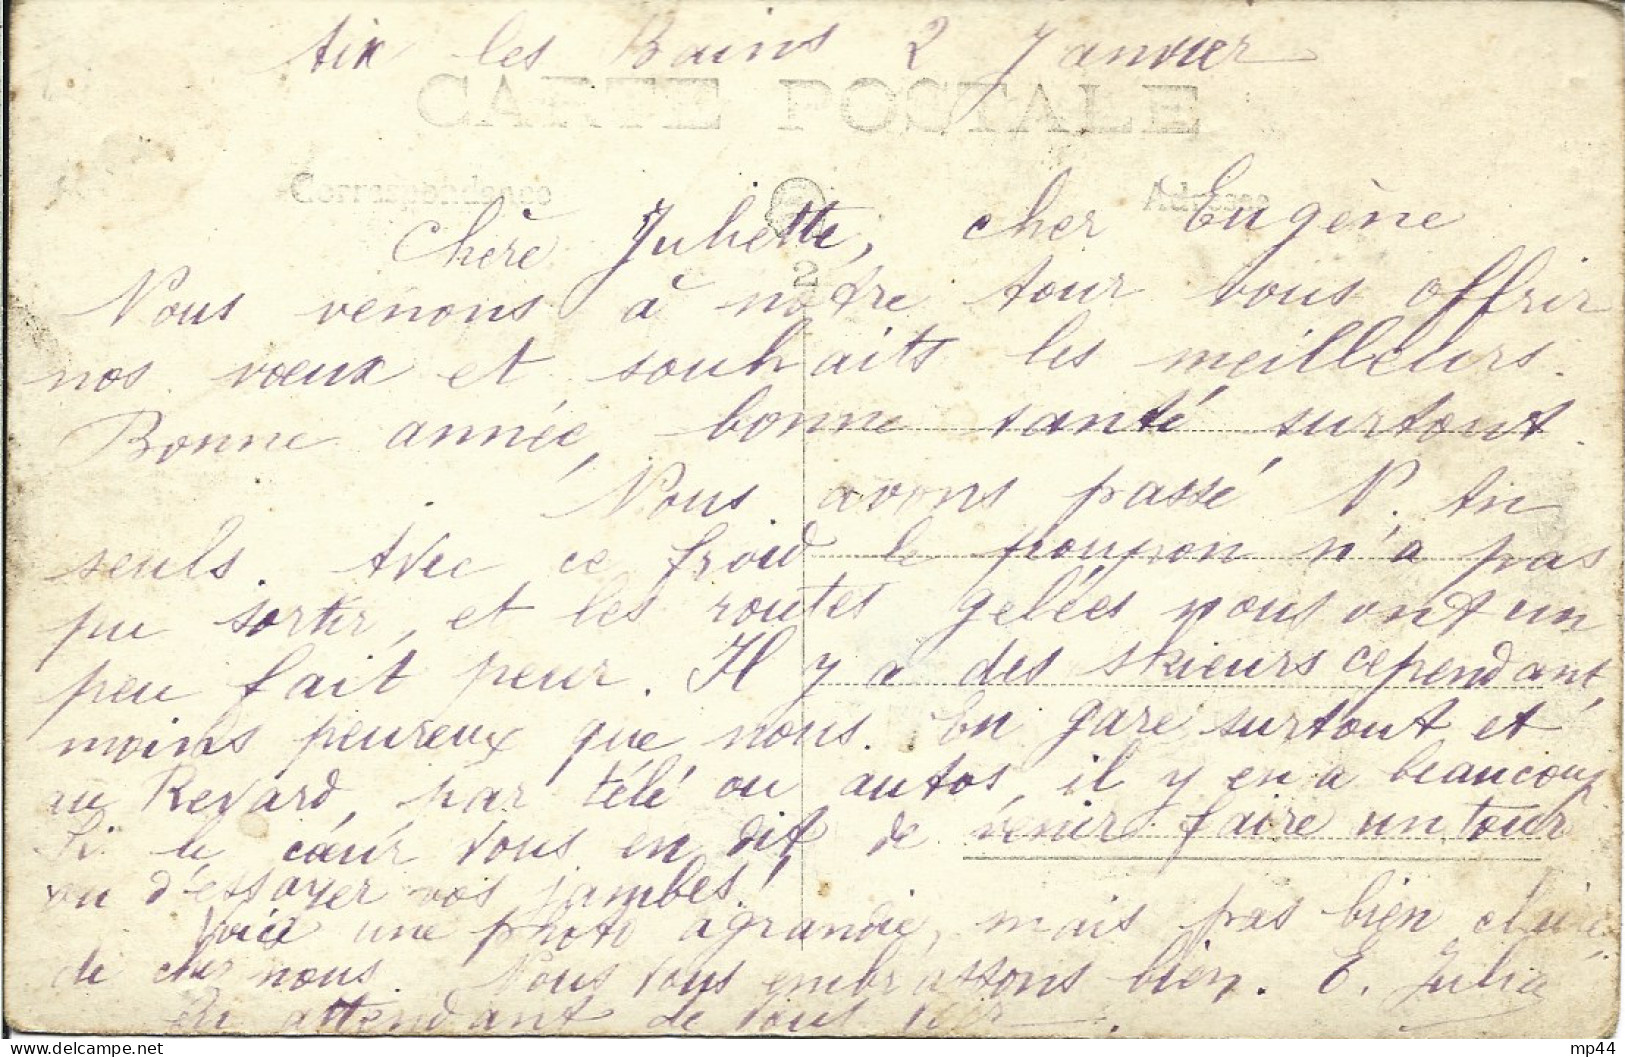 Aix les Bains 2 Janvier
CARTE POSTALE
Correspondance Adresse
Chère Juliette, cher Eugène
2
Nous venons à nôtre tour vous offrir
nos vœux et souhaits les meilleurs.
Bonne année, bonne santé surtout.
Nous avons passé N. An
seuls. Avec ce froid le poupon n'a pas
pu sortir, et les routes gelées nous ont un
peu fait peur. Il y a des skieurs cependant,
moins peureux que nous. En gare surtout et
au Revard, par télé ou autos, il y en a beaucoup
Si le cœur vous en dit de venir faire un tour
ou d'essayer vos jambes!
Voici une photo agrandie, mais pas bien claire,
de chez nous. Nous vous embrassons bien. E. Julia
En attendant de vous lire.
mp44